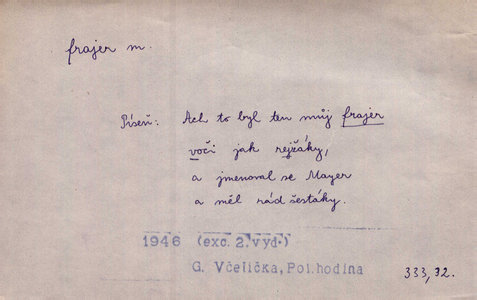 frajer m.
Píseň: Ach to byl ten můj frajer
voči jak rejžáky,
a jmenoval se Mayer
a měl rád šestáky.
1946 (exc. 2. vyd.)
G. Včelička, Pol.hodina
333, 32.